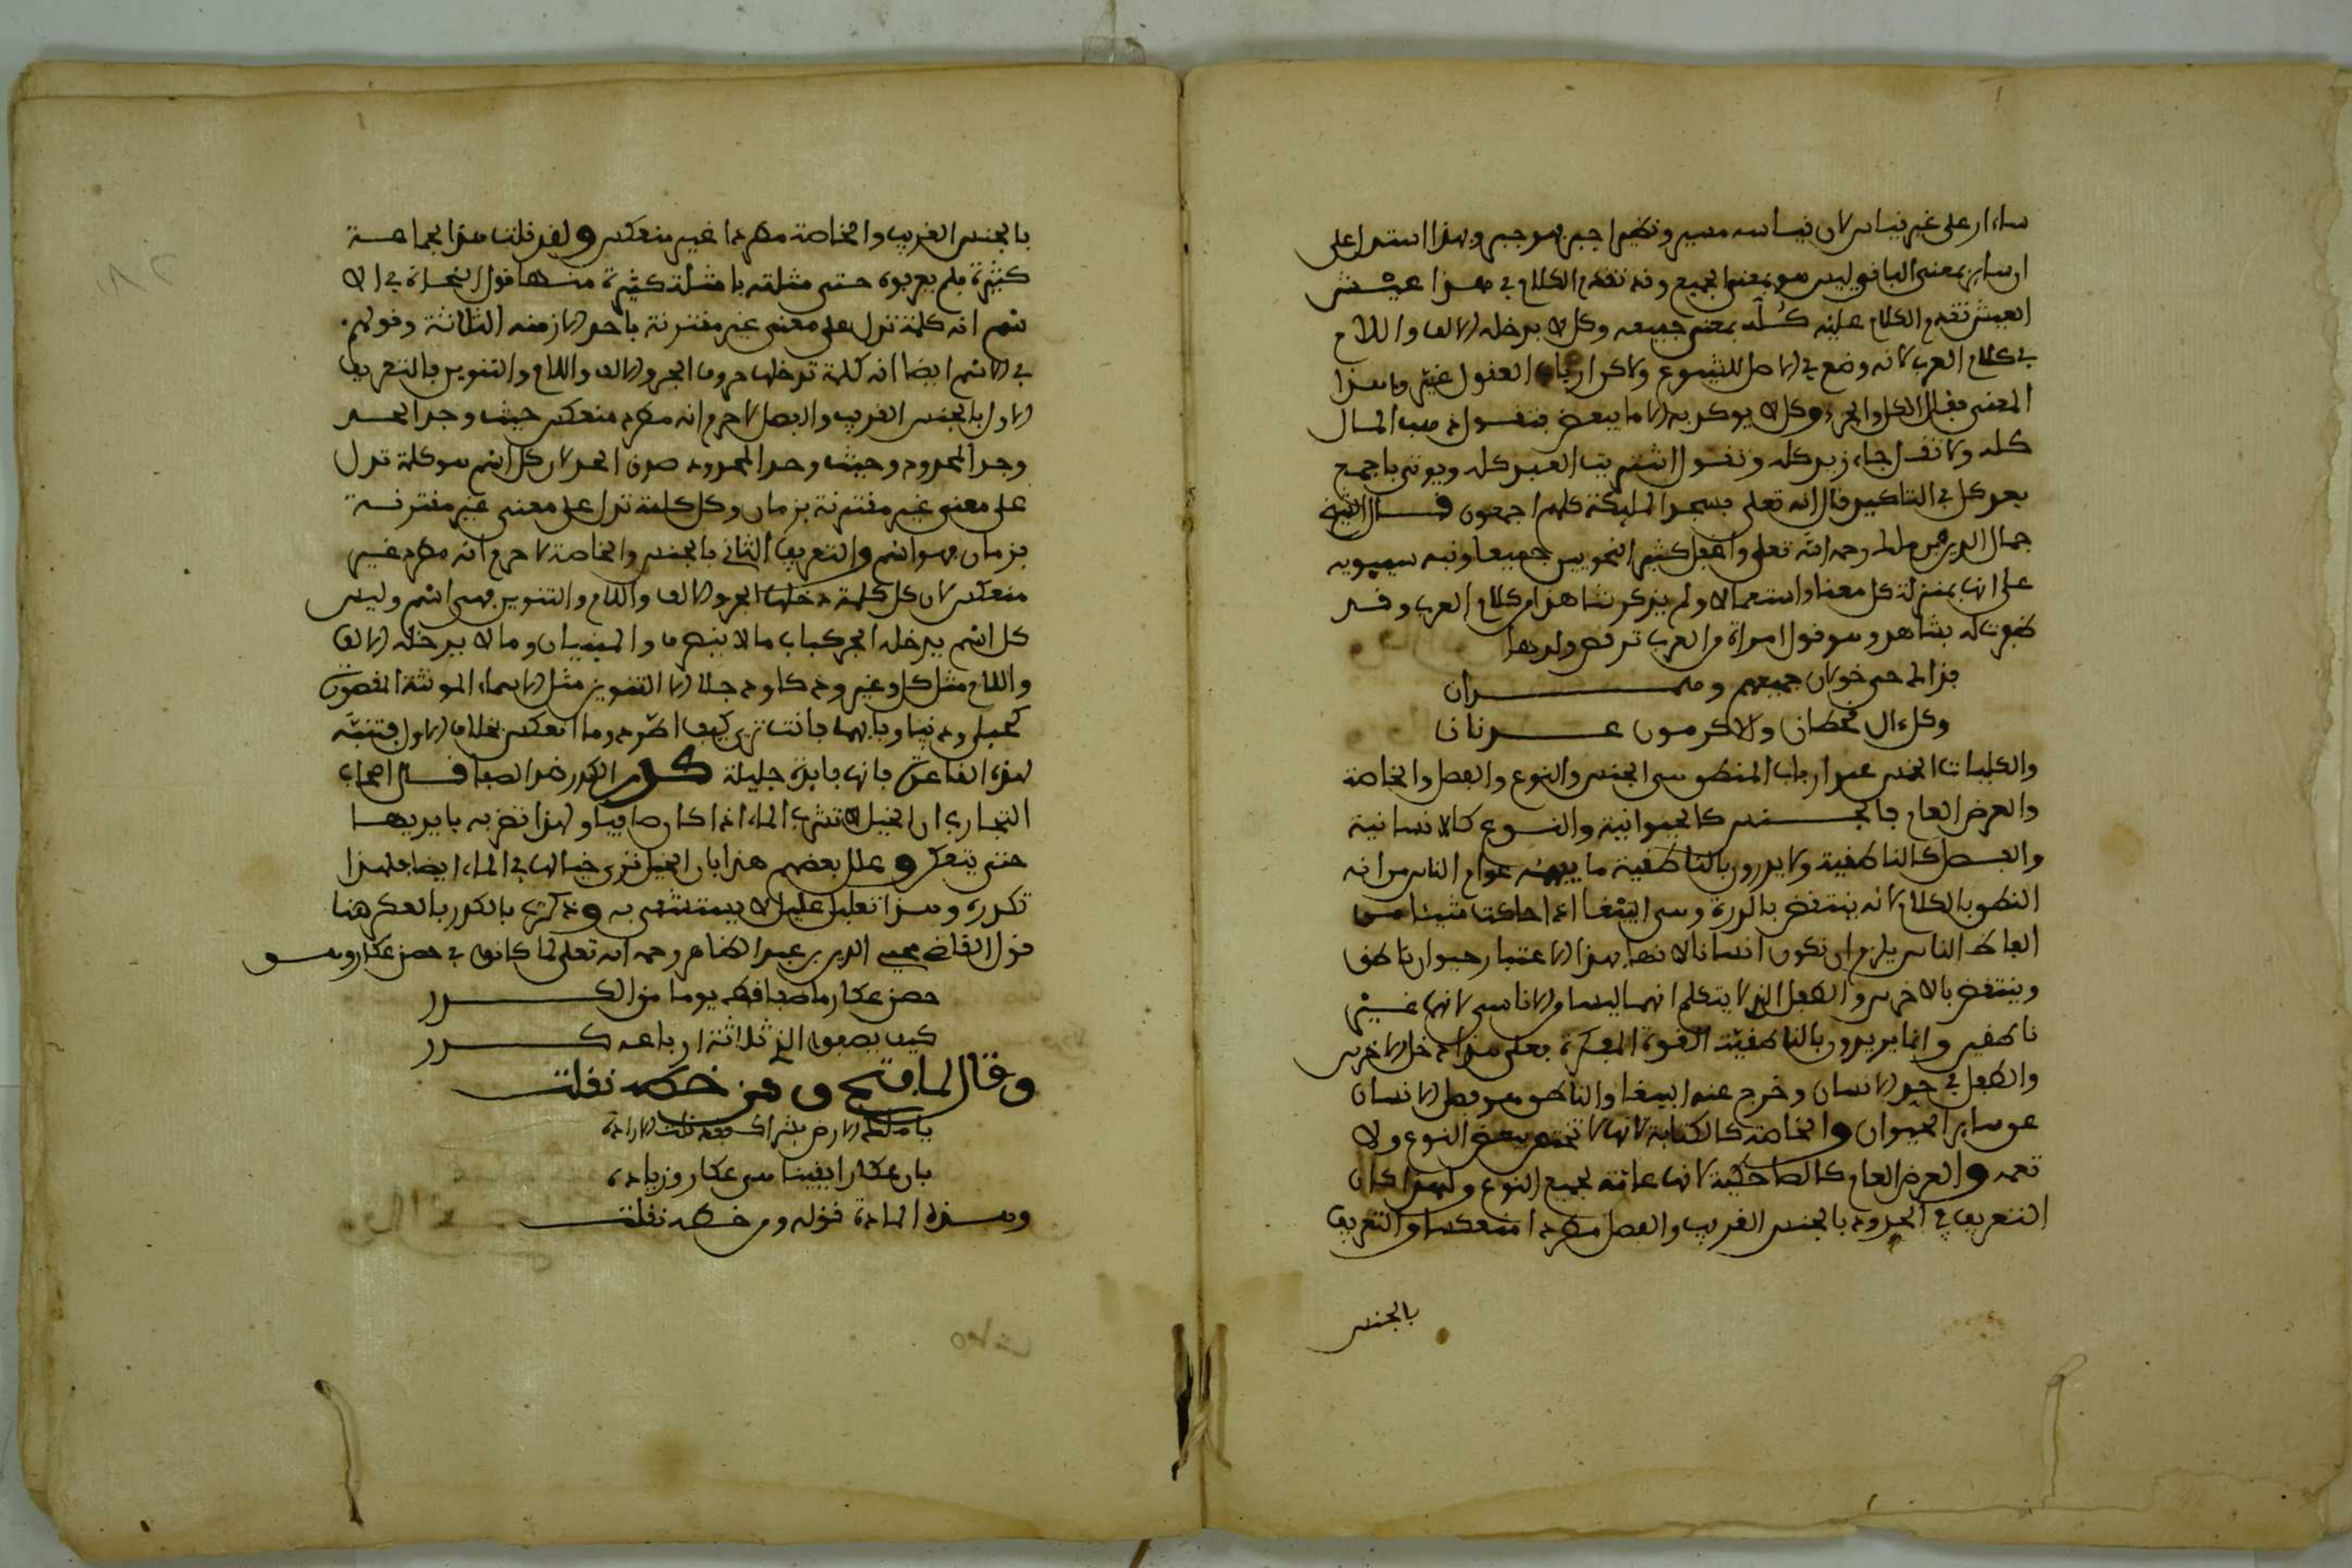 ساءار على غير قياس لان قياسه مسير ونظير اجبر فهو جبر وبهذا استدل على
ان ساير بمعنى الباقي ليس هو بمعنى الجميع وقد تقدم الكلام في هذا عيش
العيش تقدم الكلام عليه كله بمعنى جميعه وكل لا يدخله الالف واللام
في كلام العرب لانه وضع في الاصل للشيوع ولاكن ارباب العقول غيروا هذا
المعنى فقالوا الكل والجزء وكل لا يوكد به الا ما يتبعض فتقول ذهب المال
كله ولا تقل جاء زيد كله وتقول اشتريت العبد كله ويوتى باجمع
بعد كل في التاكيد قال الله تعلى فسجد المليكة كلهم اجمعون قال الشيخ
جمال الدين بن ملك رحمه الله تعلى واغفل كثير النحويين جميعا ونبه سيبويه
على انها بمنزلة كل معنا واستعمالا ولم يذكر شاهدا من كلام العرب وقد
ظفرت له بشاهد وهو قول امراة من العرب ترقص ولدها
فداك حي خولان جميعهم وهمدان
وكل ءال قحطان والاكرمون عدنان
والكليات الخمس عند ارباب المنطق هي الجنس والنوع والفصل والخاصة
والعرض العام فالجنس كالحيوانية والنوع كالانسانية
والفصل كالناطقية ولا يريدون بالناطقية ما يفهمه عوام الناس من انه
النطق بالكلام لانه ينتقض بالدرة وهي الببغا اذا حاكت شيئا من
الفاظ الناس يلزم ان تكون انسانا لانها بهذا الاعتبار حيوان ناطق
وينتقض بالاخرس والطفل الذي لا يتكلم انهما ليسا والاناسي لانها غير
ناطقين وانما يريدون بالناطقية القوة المفكرة فعلى هذا دخل الاخرس
والطفل في حد الانسان وخرج عنه الببغا والناطق هو فصل الانسان
عن ساير الحيوان والخاصة كالكتابة لانها تختص ببعض النوع ولا
تعمه والعرض العام كالضاحكية لانها عامة لجميع النوع ولهذا كان
التعريف في الحدود بالجنس القريب والفصل مطردا منعكسا والتعريف
بالجنس
بالجنس القريب والخاصة مطردا غير منعكس ولقد قلت هذا لجماعة
كثيرة فلم يعرفوه حتى مثلته بامثلة كثيرة منها قول النحاة في الا
سم انه كلمة تدل على معنى غير مقترنة باحد الازمنه الثلاثة وقولهم
في الاسم ايضا انه كلمة تدخلها حروف الجر والالف واللام والتنوين فالتعريف
الاول بالجنس القريب والفصل لا جرم انه مطرد منعكس حيث وجد الحد
وجد المحدود وحيث وجد المحدود صدق الحد لان كل اسم هو كلمة تدل
على معنى غير مقترنة بزمان وكل كلمة تدل على معنى غير مقترنة
بزمان فهو اسم والتعريف الثاني بالجنس والخاصة لا جرم انه مطرد غير
منعكس لان كل كلمة دخلها الجر والالف واللام والتنوين فهي اسم وليس
كل اسم يدخله الجر كباب ما لا ينصرف والمبنيات وما لا يدخله الالف
واللام مثل كل وغير ودكا ودجلا الا التنوين مثل الاسماء المونثة المقصورة
كحبلى ودنيا وبابهما فانت ترى كيف اطرد وما انعكس بخلاف الاول فتنبه
لهذه القاعدة فانها فايدة جليلة كدر الكدر ضد الصفا قال اصحاب
التجارب ان الخيل لا تشرب الماء اذا كان صافيا ولهذا تضربه بايديها
حتى يتعكر وعلل بعضهم هذا بان الخيل ترى خيالها في الماء ايضا فلهذا
تكدره وهذا تعليل عليل لا يستشفى به وذكرت بالكدر بالعكر هنا
قول القاضي محيي الدين بن عبد الظاهر رحمه الله تعلى لما كانوا في حصن عكار وهو
حصن عكار ما صفا قط يوما من الكدر
كيف يصفو الذي ثلاثة ارباعه كدر
وقال لما فتح ومن خطه نقلت
يا مليك الارض بشراك فقد نلت الاراده
بان عكار يقينا هي عكا وزياده
وهذه المادة قوله ومن خطه نقلت